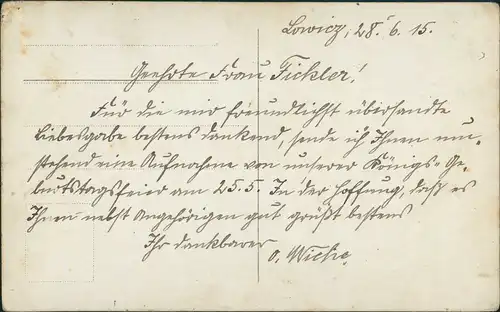 Lowicz, 28.6.15.
Geehrte Frau Tickler!
Für die mir freundlichst übersandte
Liebesgabe bestens dankend, sende ich Ihnen um-
stehend eine Aufnahme von unserer Königs-Ge-
burtstagsfeier am 25.5. In der Hoffnung, daß es
Ihnen nebst Angehörigen gut grüßt bestens
Ihr dankbarer